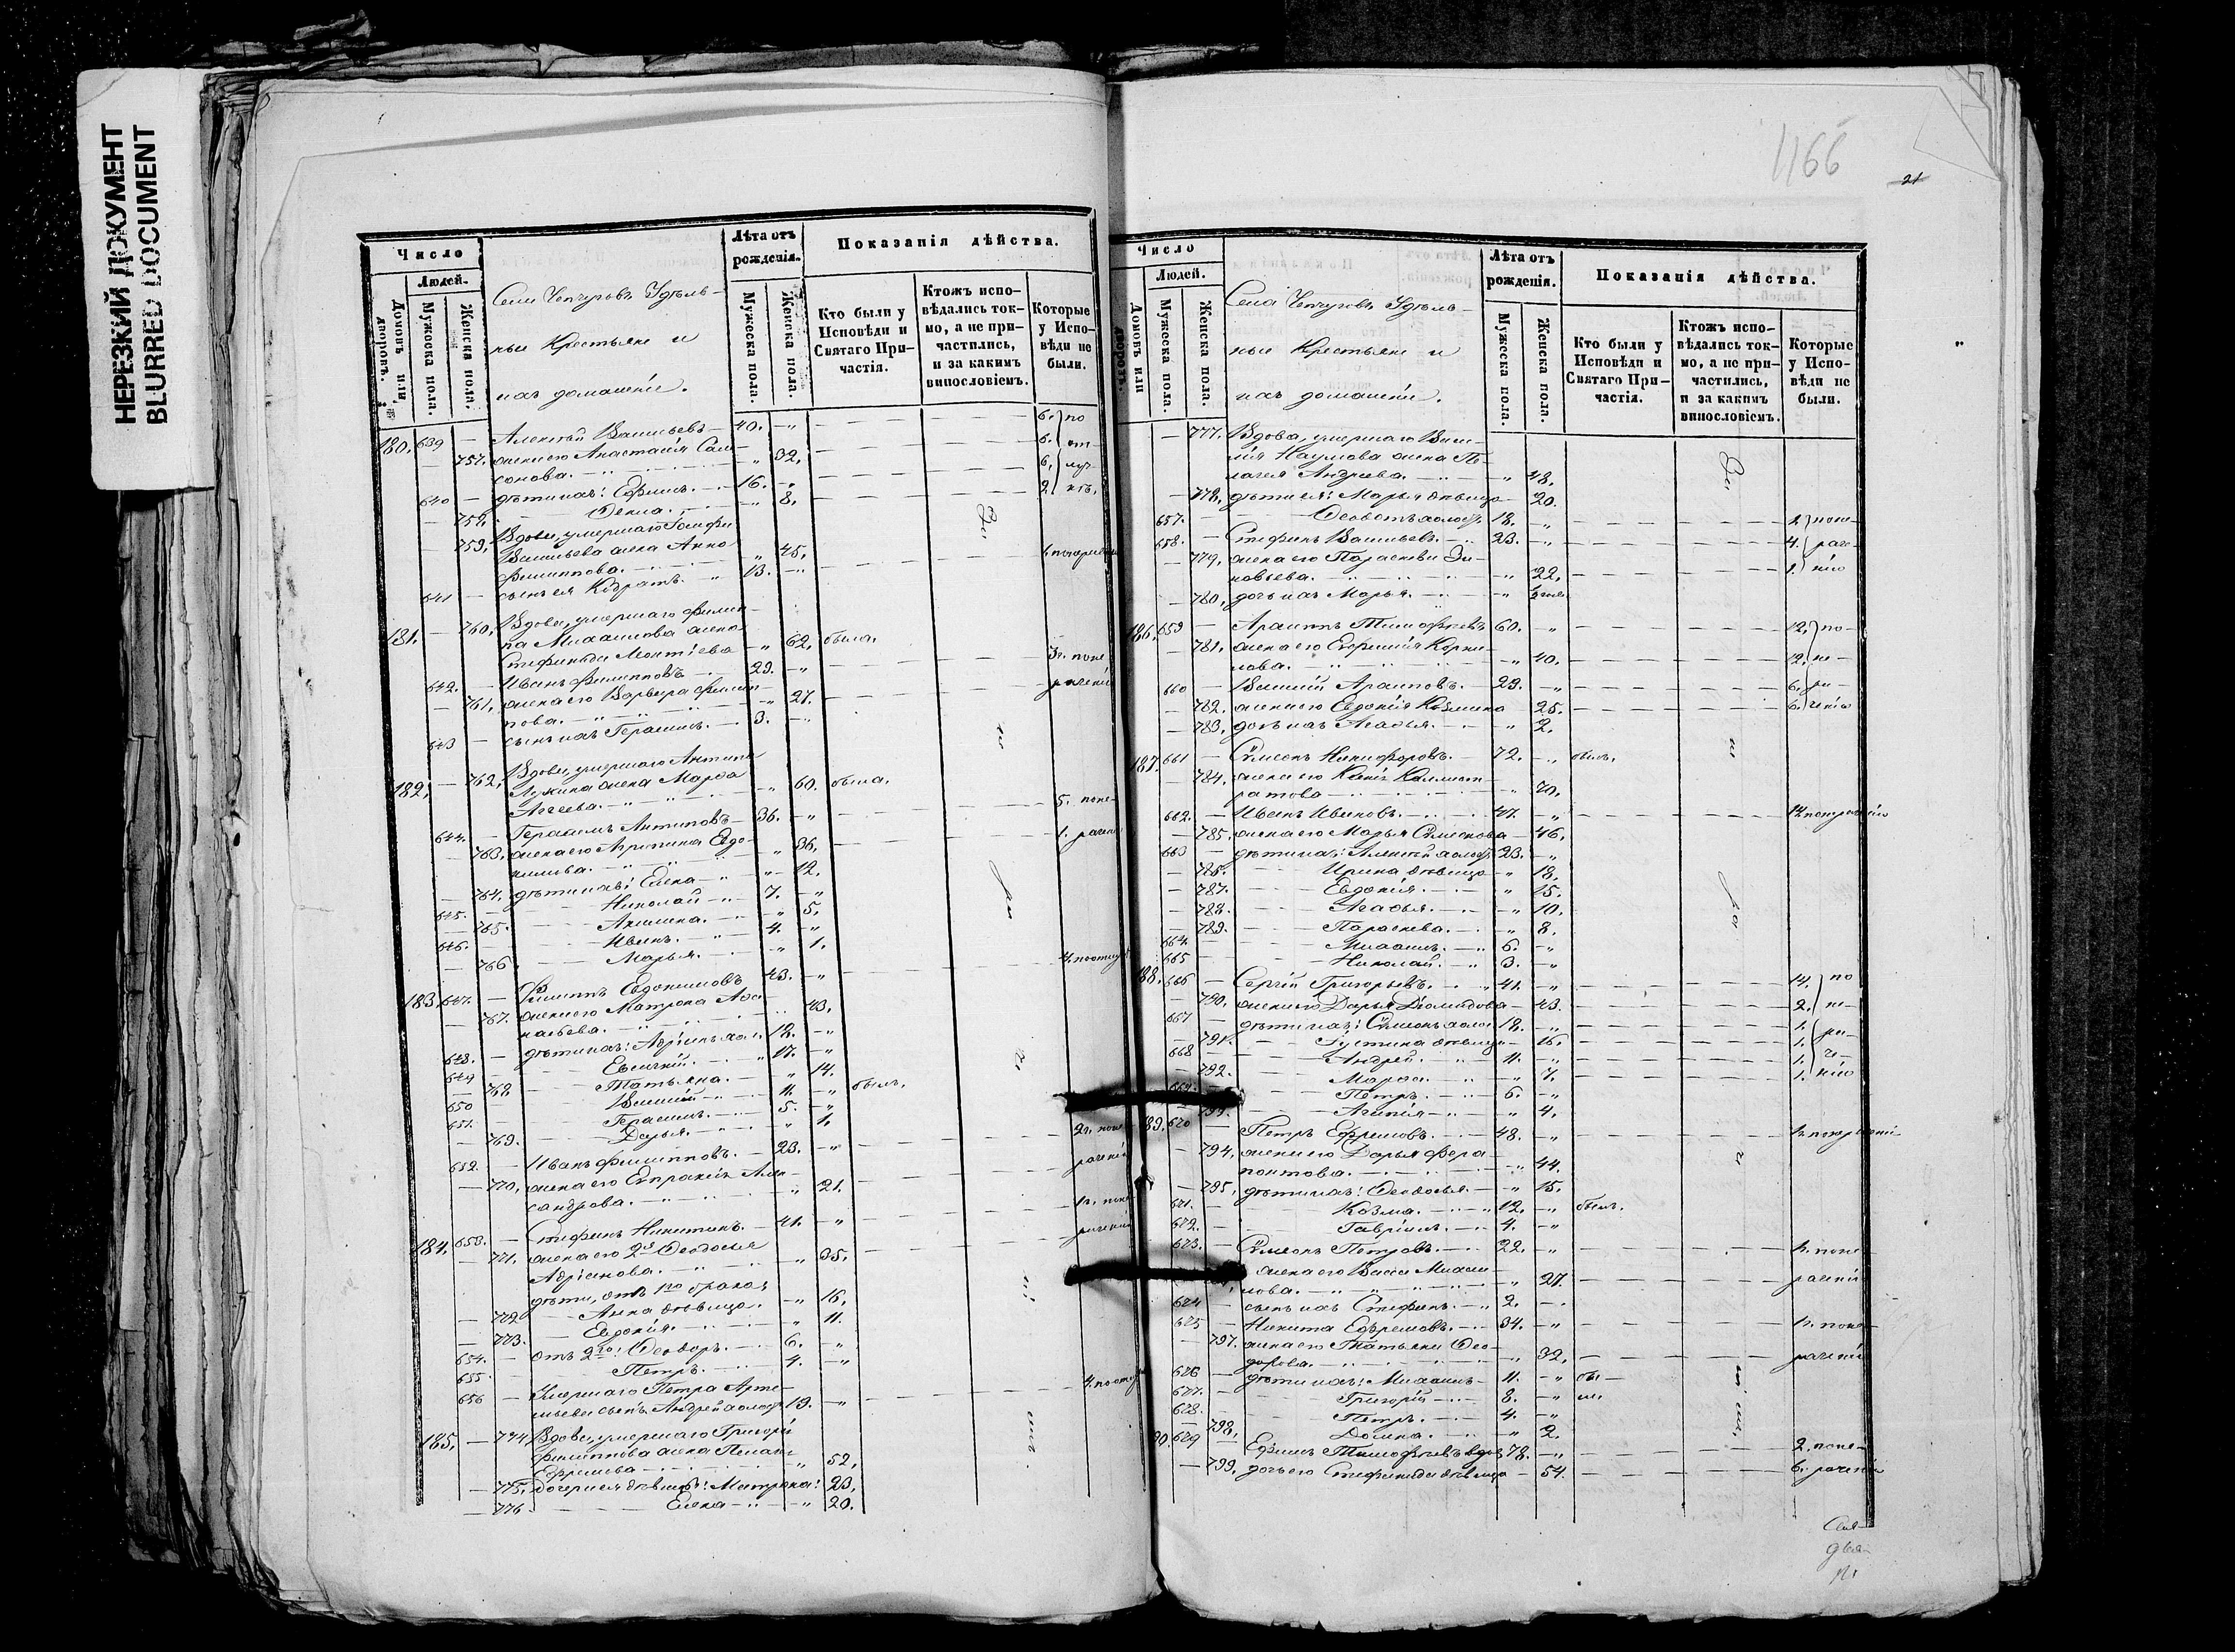 НЕРЕЗКИЙ ДОКУМЕНТ
BLURRED DOCUMENT
Число
Людей.
Домовъ или дворовъ.
Мужеска пола.
Женска пола.
Села Чепчуговъ Удѣль-
ные Крестьяне и
ихъ домашніе.
Лѣта отъ
рожденія.
Мужеска пола.
Женска пола.
Показанія дѣйства.
Кто были у
Исповѣди и
Святаго При-
частія.
Ктожъ испо-
вѣдались ток-
мо, а не при-
частились,
и за какимъ
винословіемъ.
Которые
у Испо-
вѣди не
были.
180. 639 — Алексѣй Васильевъ — 40. 6. по
757. жена его Анастасія Сам- 6. от-
сонова. 32. 6. луч-
640 — дѣти ихъ: Ефимъ. 16. 2. кѣ.
758. Ѳекла. 8.
759. Вдова, умершаго
Васильева жена Анна
Филиппова. 45.
641 — сынъ ея Кодратъ. 13.
181. — 760. Вдова, умершаго Филип-
па Михайлова жена
Стефанида Леонтіева 62. была.
642. — Иванъ Филипповъ 29. 3. поне-
761. жена его Варвара Филип- раченію
пова. 27.
643 — сынъ ихъ Герасимъ. 3.
182. — 762. Вдова, умершаго Антипа
Лукина жена Марѳа
Агеева. 60. была.
644. — Герасимъ Антиповъ 36. 5. поне-
763. жена его Агрипина Евдо- 1. рачен
кимова. 36.
764. дѣти ихъ: Елена 12.
645. — Николай 7.
765. Акилина. 5.
646. — Иванъ. 4.
766 Марья. 1.
183. 647. — Филиппъ Евдокимовъ 43. 4. по
767. жена его Матрона Аѳа-
насьева. 43.
648. — дѣти ихъ: Адріанъ хол. 18.
649 — Евсигній. 17.
768 Татьяна. 14.
650 — Василій 11. былъ.
651. — Герасимъ. 5.
769. Дарья. 1.
652. — Иванъ Филипповъ. 23. 2. поне-
770. жена его Евпраксія Алек- раченію
сандрова. 21.
184. 653. — Стефанъ Никитинъ. 41. 1. поне-
771. жена его 2я Ѳеодосья раченію
Адріанова. 35.
дѣти, отъ 1го брака:
772 Анна дѣвица. 16.
773. Евдокія. 11.
654. — отъ 2го: Ѳеодоръ. 6.
655 — Петръ. 4.
656 — Умершаго Петра Арте-
мьева сынъ Андрей холост. 19.
185. — 774. Вдова, умершаго Григорія
Филиппова жена Пелагія
Ефремова 52.
775. дочери ея дѣвицы: Матрона: 23.
776. Елена 20.
1166
21
Число
Людей.
Домовъ или дворовъ.
Мужеска пола.
Женска пола.
Села Чепчуговъ Удѣль-
ные Крестьяне и
ихъ домашніе.
Лѣта отъ
рожденія.
Мужеска пола.
Женска пола.
Показанія дѣйства.
Кто были у
Исповѣди и
Святаго При-
частія.
Ктожъ испо-
вѣдались ток-
мо, а не при-
частились,
и за какимъ
винословіемъ.
Которые
у Испо-
вѣди не
были.
— 777. Вдова, умершаго Васи-
лія Наумова жена Пе-
лагея Андреева. 48.
— 778. дѣти ея: Марья дѣвица 20.
657. — Ѳеоѳктъ холост. 18. 2. поне-
658. — Стефанъ Васильевъ. 23. 4. раче-
— 779. жена его Параскева Зи- 1. нію
новьева. 22.
— 780. дочь ихъ Марья.
186. 659 — Архиппъ Тимофеевъ 60. 12. по-
— 781. жена его Евфимія Корни-
лова. 40. 12. не-
660 — Василій Архиповъ. 23. 6. ра-
782. жена его Евдокія Козмина 25. 6. ченію
783. дочь ихъ Агафья. 2.
187. 661 — Симеонъ Никифоровъ. 72. былъ.
— 784. жена его Ксенія Каллист-
ратова 70.
662. — Иванъ Ивановъ. 47.
785. жена его Марья Симеонова 46.
663 — дѣти ихъ: Алексѣй холост. 23.
786. Ирина дѣвица 18.
787. Евдокія. 15.
788. Агафья. 10.
789. Параскева. 8.
664. — Михаилъ. 6.
665 — Николай. 3.
188. 666 — Сергій Григорьевъ. 41. 14. по
790. жена его Дарья Діомидова 43. 2. не-
667 — дѣти ихъ: Симеонъ холос. 18. 1. ра-
791. Іустина дѣвица 16. 1.
668 — Андрей. 11. 1. че-
792. Марѳа. 7. 1. нію
669. — Петръ. 6.
793. Агапія 4.
189. 670 — Петръ Ефремовъ. 48.
794. жена его Дарья Фера-
понтова. 44.
795. дѣти ихъ: Ѳеодосья. 15.
671. — Козма. 12. былъ.
672. — Гавріилъ. 4.
673. — Симеонъ Петровъ. 22. 1. поне-
жена его Васса Михаи- раченію
лова. 27.
674 — сынъ ихъ Стефанъ. 2.
675 — Никита Ефремовъ. 34. 1. поне-
797. жена его Татьяна Ѳео-
дорова. 32. раченію
676 — дѣти ихъ: Михаилъ 11. бы-
677. — Григорій 8. ли
678. — Петръ. 4.
798. Домна. 2.
190. 679 — Ефимъ Тимофеевъ вдов. 78. 2. поне-
799. дочь его Стефанида дѣвица 54. 6. раченію